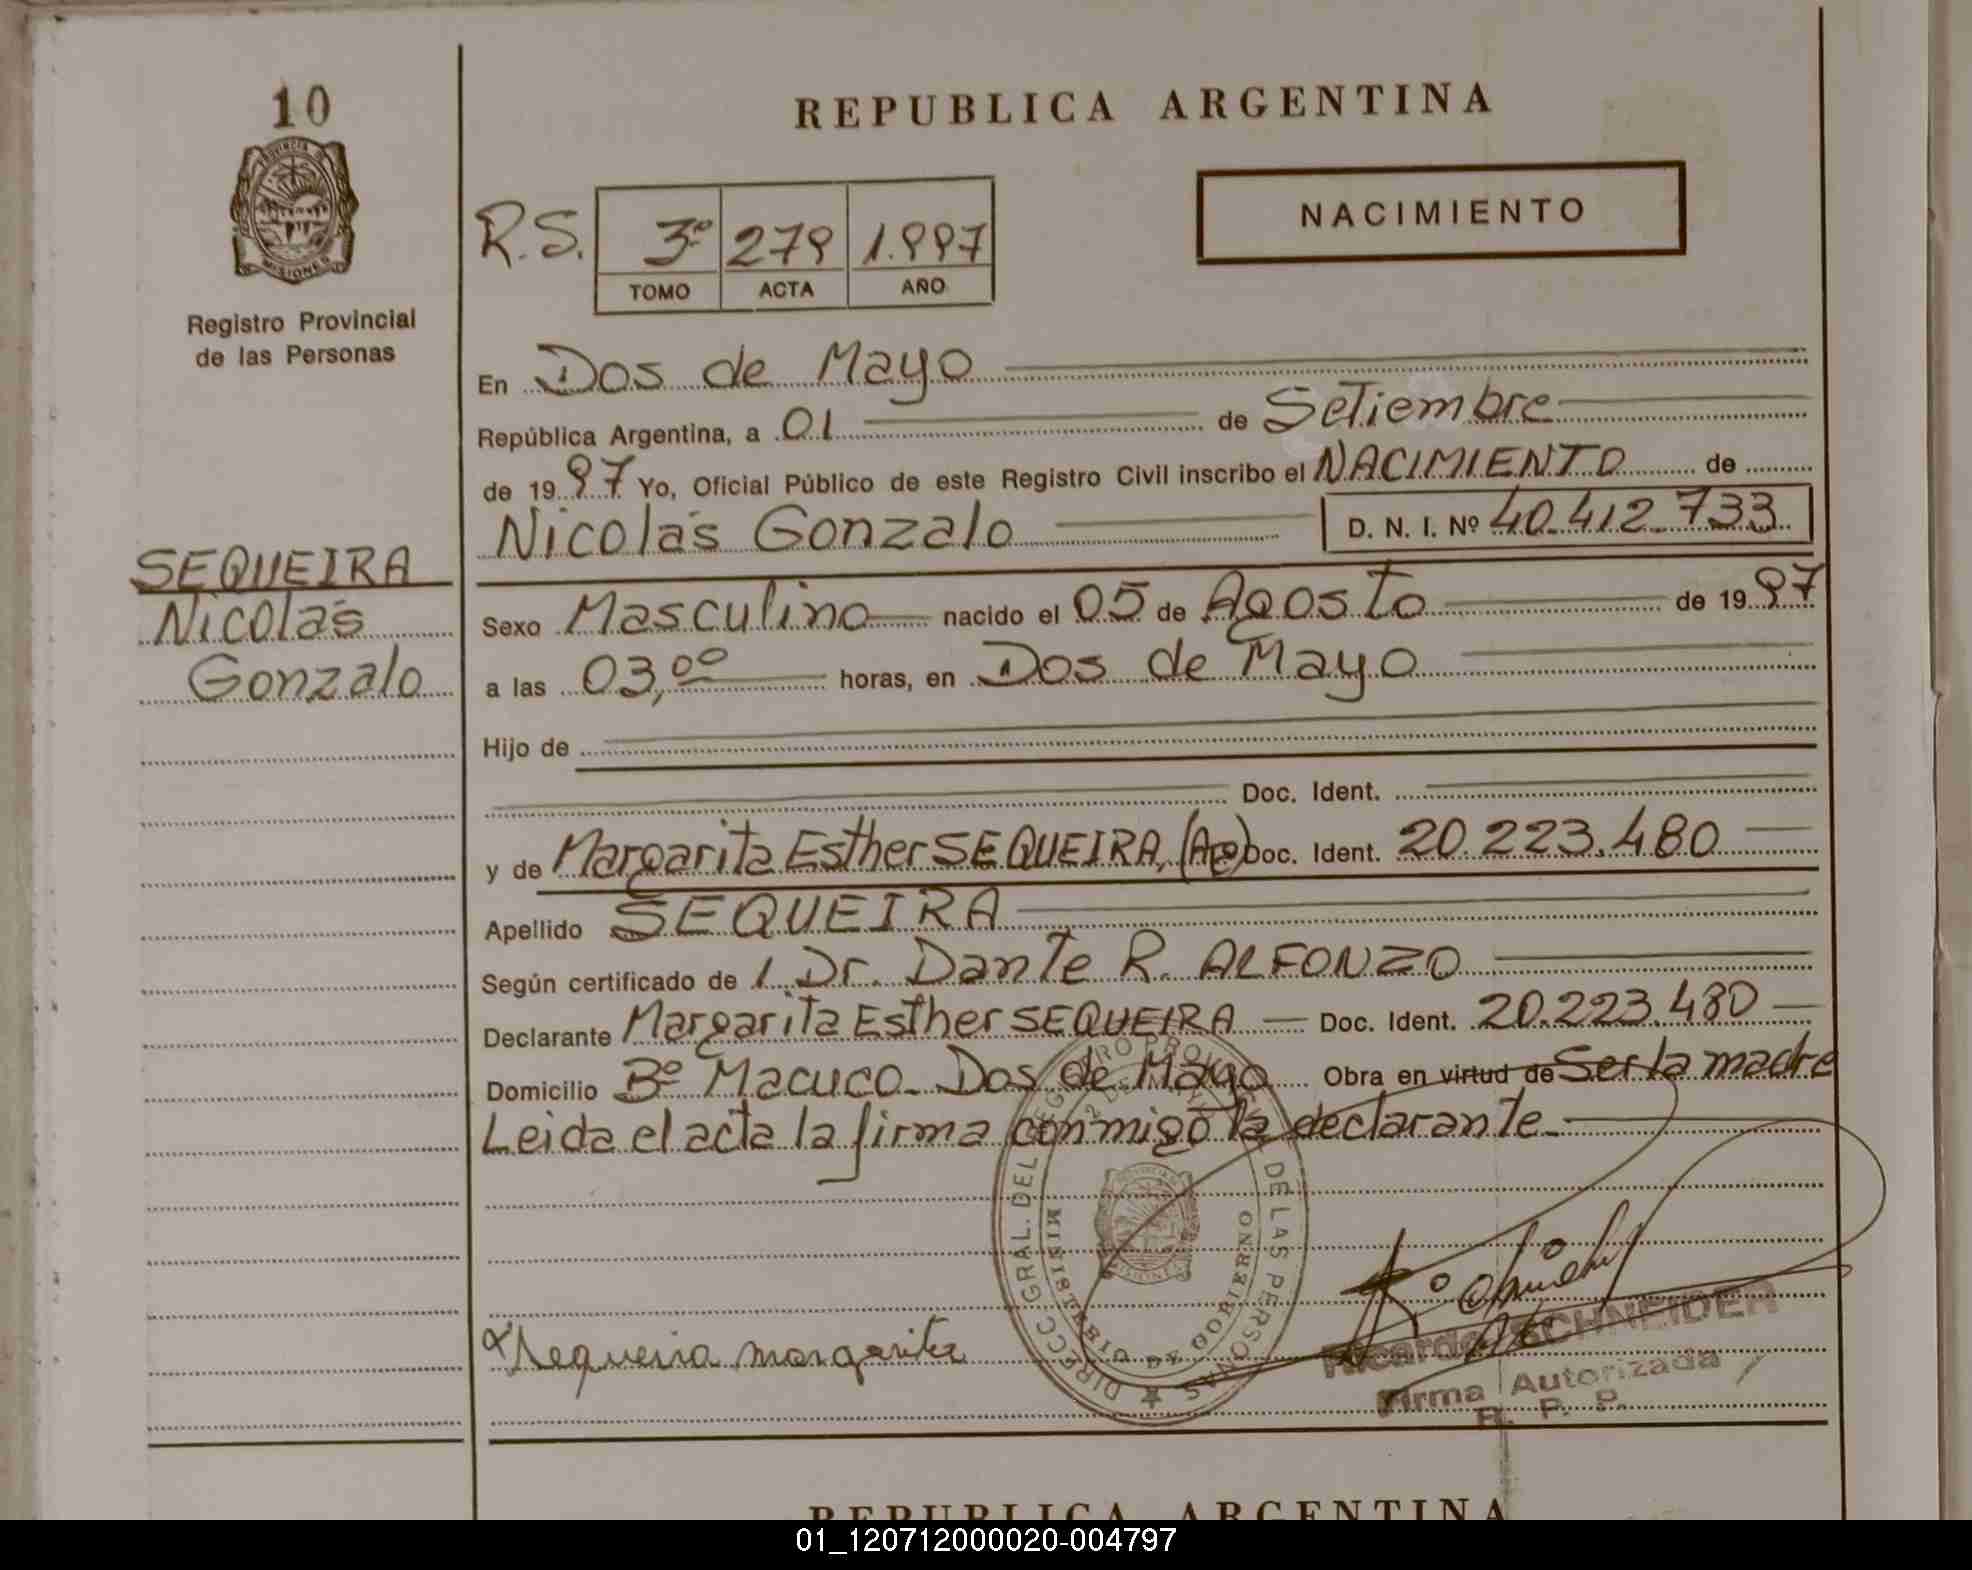 10
REPUBLICA ARGENTINA
PROVINCIA DE
MISIONES
Registro Provincial
de las Personas
NACIMIENTO
R.S. 3º 279 1.997
TOMO ACTA AÑO
En Dos de Mayo
República Argentina, a 01 de Setiembre
de 1997 Yo, Oficial Público de este Registro Civil inscribo el NACIMIENTO de
Nicolás Gonzalo D. N. I. Nº 40.412.733
SEQUEIRA
Nicolás
Gonzalo
Sexo Masculino nacido el 05 de Agosto de 1997
a las 03,00 horas, en Dos de Mayo
Hijo de
Doc. Ident.
y de Margarita Esther SEQUEIRA, (Arg) Doc. Ident. 20.223.480
Apellido SEQUEIRA
Según certificado de 1. Dr. Dante R. ALFONZO
Declarante Margarita Esther SEQUEIRA Doc. Ident. 20.223.480
Domicilio Bº Macuco - Dos de Mayo Obra en virtud de Ser la madre
Leida el acta la firma conmigo la declarante.
DIRECC. GRAL. DEL REGISTRO PROVINCIAL DE LAS PERSONAS
MINISTERIO DE GOBIERNO
MISIONES
Sequeira margarita
Ricardo SCHNEIDER
Firma Autorizada
R. P. P.
REPUBLICA ARGENTINA
01_120712000020-004797